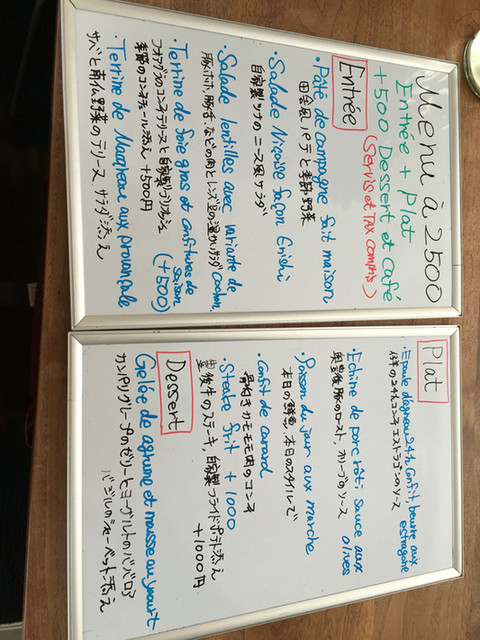 Menu à 2500
Entrée + Plat
+500 Dessert et café
(Servis et TAX compris)
Entrée
・Pâté de campagne fait maison
田舎風パテと季節野菜
・Salade Niçoise façon Enishi
自家製ツナのニース風サラダ
・Salade lentilles avec variante de cochon.
豚ホホ、豚舌、などの肉とレンズ豆の温かいサラダ
・Terrine de foie gras et confitures de saison (+500)
フォアグラのコンキテリーヌと自家製ブリオッシュ
季節のコンフィチュール添え +500円
・Terrine de Maqureau aux provençale
サバと南仏野菜のテリーヌ サラダ添え
Plat
・Epaule d'agneau 24h Confit, beurre aux estragons
仔羊の24hコンフィ エストラゴンのソース
・Echine de porc rôti Sauce aux olives
奥豊後豚のロースト、オリーブのソース
・Poisson du jour aux marche
本日の鮮魚、本日のスタイルで
・Confit de canard
骨付きカモモモ肉のコンフィ
・Steake frit +1000
豊後牛のステーキ、自家製フライドポテト添え
+1000円
Dessert
Gelée de agrume et mousse au yaourt
カンパリグレープのゼリーとヨーグルトのババロア
バジルのシャーベット添え